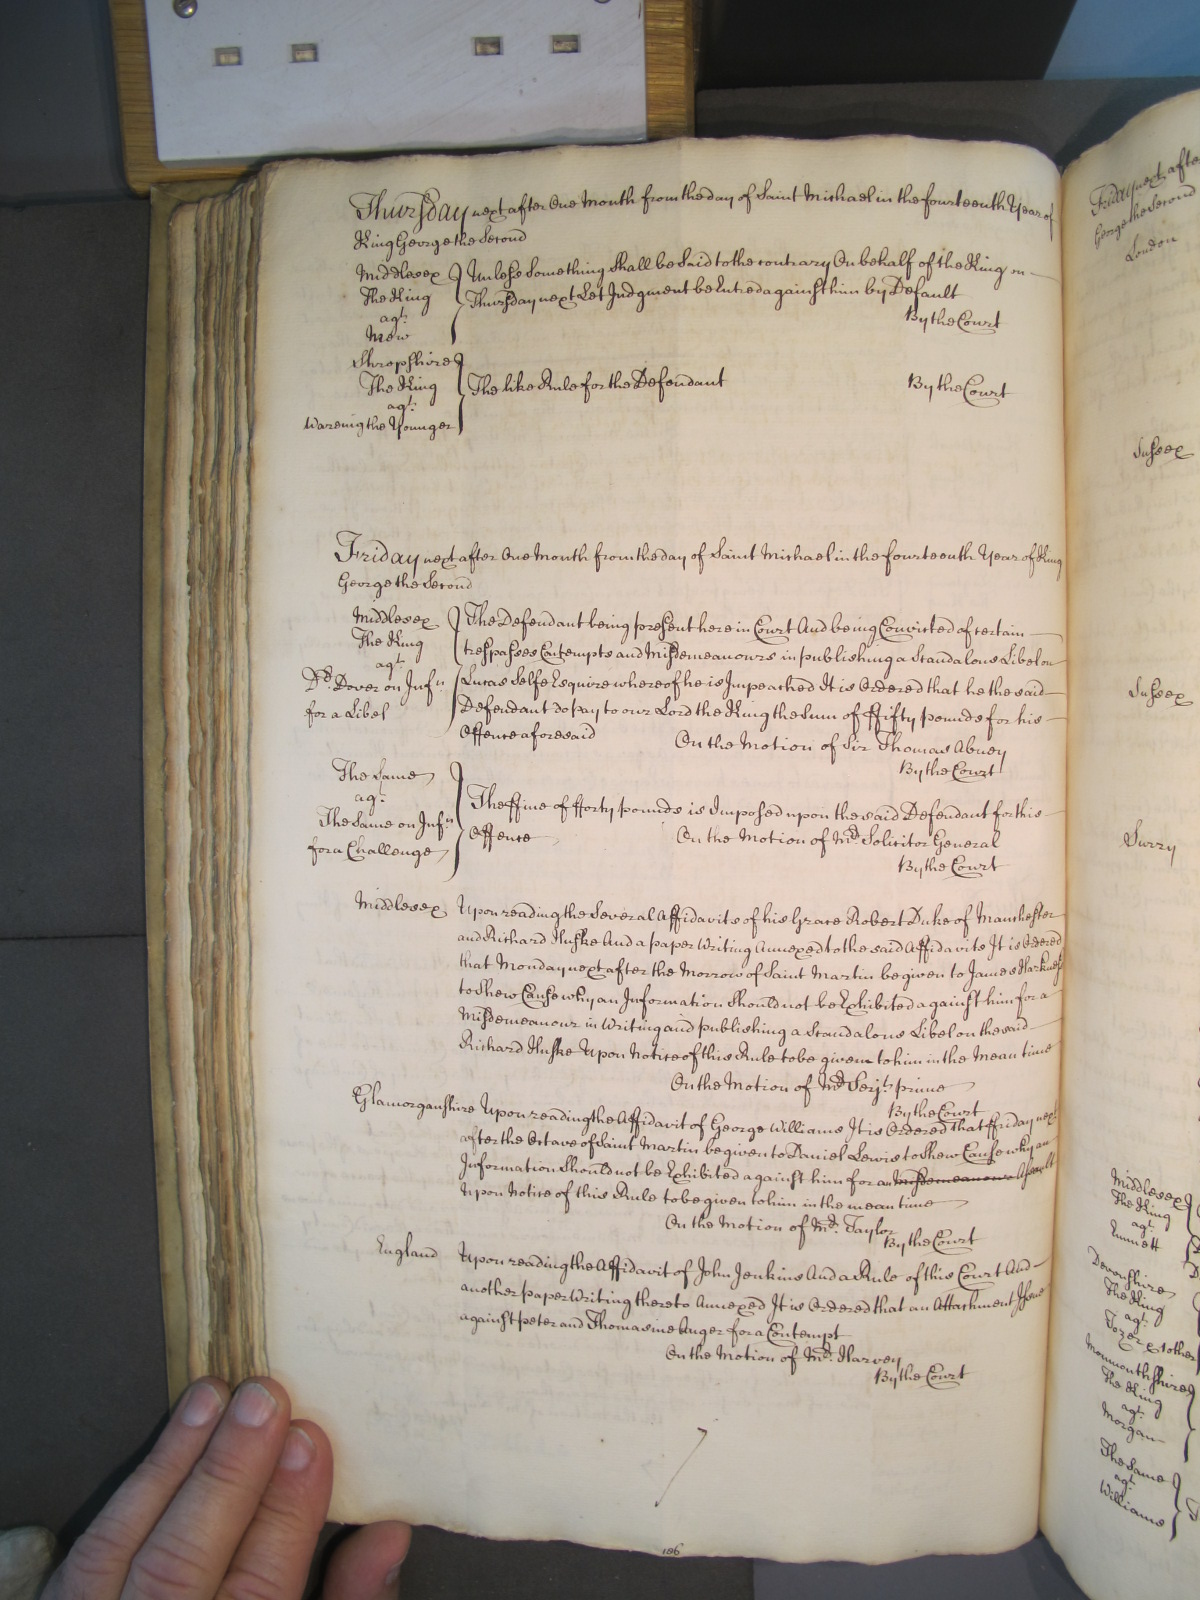 Thursday next after One Month from the day of Saint Michael in the fourteenth Year of
King George the Second
Middlesex
The King
agt.
New
Unless Something Shall be Said to the contrary On behalf of the King on
Thursday next Let Judgment be Entred against him by Default
By the Court
Shropshire
The King
agt.
Wareing the Younger
The like Rule for the Defendant
By the Court
Friday next after One Month from the day of Saint Michael in the fourteenth Year of King
George the Second
Middlesex
The King
agt.
Dd. Dover on Infn
for a Libel
The Defendant being present here in Court And being Convicted of certain
trespasses Contempts and Misdemeanours in publishing a Scandalous Libel on
Lucas Selfe Esquire whereof he is Impeached It is Ordered that he the said
Defendant do pay to our Lord the King the Sum of ffifty pounds for his
Offence aforesaid
On the Motion of Sir Thomas Abney
By the Court
The Same
agt.
The Same on Infn
for a Challenge
The ffine of fforty pounds is Imposed upon the said Defendant for this
Offence
On the Motion of Mr. Solicitor General
By the Court
Middlesex
Upon reading the Several Affidavits of his Grace Robert Duke of Manchester
and Richard Huske And a paper Writing Annexed to the said Affidavits It is Ordered
that Monday next after the Morrow of Saint Martin be given to James Harkness
to Shew Cause why an Information Should not be Exhibited against him for a
Misdemeanour in Writing and publishing a Scandalous Libel on the said
Richard Huske Upon Notice of this Rule to be given to him in the Mean time
On the Motion of Mr. Serjt. prime
By the Court
Glamorganshire
Upon reading the Affidavit of George Williams It is Ordered That ffriday next
after the Octave of Saint Martin be given to Daniel Lewis to Shew Cause why an
Information Should not be Exhibited against him for an Misdemeanour Assault
Upon Notice of this Rule to be given to him in the mean time
On the Motion of Mr. Taylor
By the Court
England
Upon reading the Affidavit of John Jenkins And a Rule of this Court And
another paper Writing thereto Annexed It is Ordered that an Attachment Issue
against peter and Thomasine Auger for a Contempt
On the Motion of Mr. Harvey
By the Court
106
Friday next afte
George the Second
London
Sussex
Sussex
Surry
Middlesex
The King
agt.
Emmett
Devonshire
The King
agt.
Tozer & other
Monmouthshire
The King
agt.
Morgan
The Same
agt.
Williams